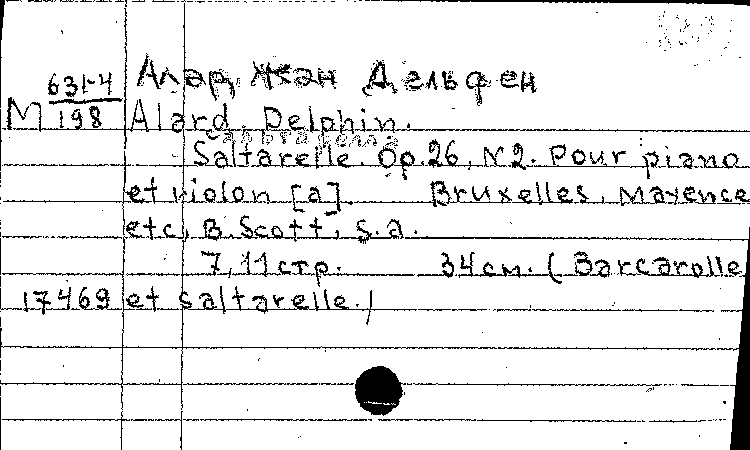 Алард Жан Дельфен
М 631-4/198 Alard, Delphin.
Saltarelle. Op.26, N2. Pour piano
et violon [a]. Bruxelles, Mayence
etc, B. Scott, s.a.
7,11 стр. 34 см. (Barcarolle
17469 et saltarelle.)